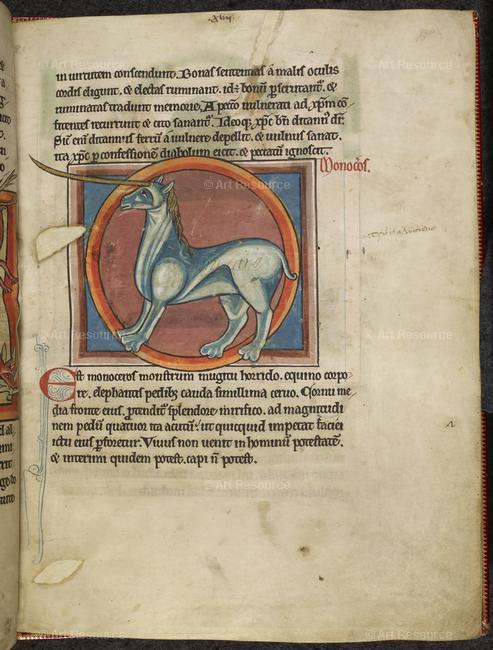 .xviij.
in uirtutem conscendunt. Bonas sententias a malis oculis
cordis eligunt. & electas ruminant. id÷ bonū pscrutant̃. &
ruminatas tradunt memorie. A pccō uulnerati ad xp̄m cō-
fitentes recurrunt & cito sanant̃. Ideoq; xp̄c bn̄ ditann᷒ dr̄.
Sic eni ditann᷒ ferrū a uulnere depellit. & uulnus sanat.
ita xp̄c p confessionē diabolum eicit. & peccatū ignoscit.
Monocōs.
Est monoceros monstrum mugitu horrido. equino corpo-
re. elephantis pedib; cauda simillima ceruo. Cornu me-
dia fronte eius. ptendit᷒ splendore mirifico. ad magnitudi
nem pedū quatuor ita acutū. ut quicquid impetat facile
ictu eius pforetur. Viuus non uenit in hominū potestatē.
& interimi quidem potest. capi n̄ potest.
© Art Resource